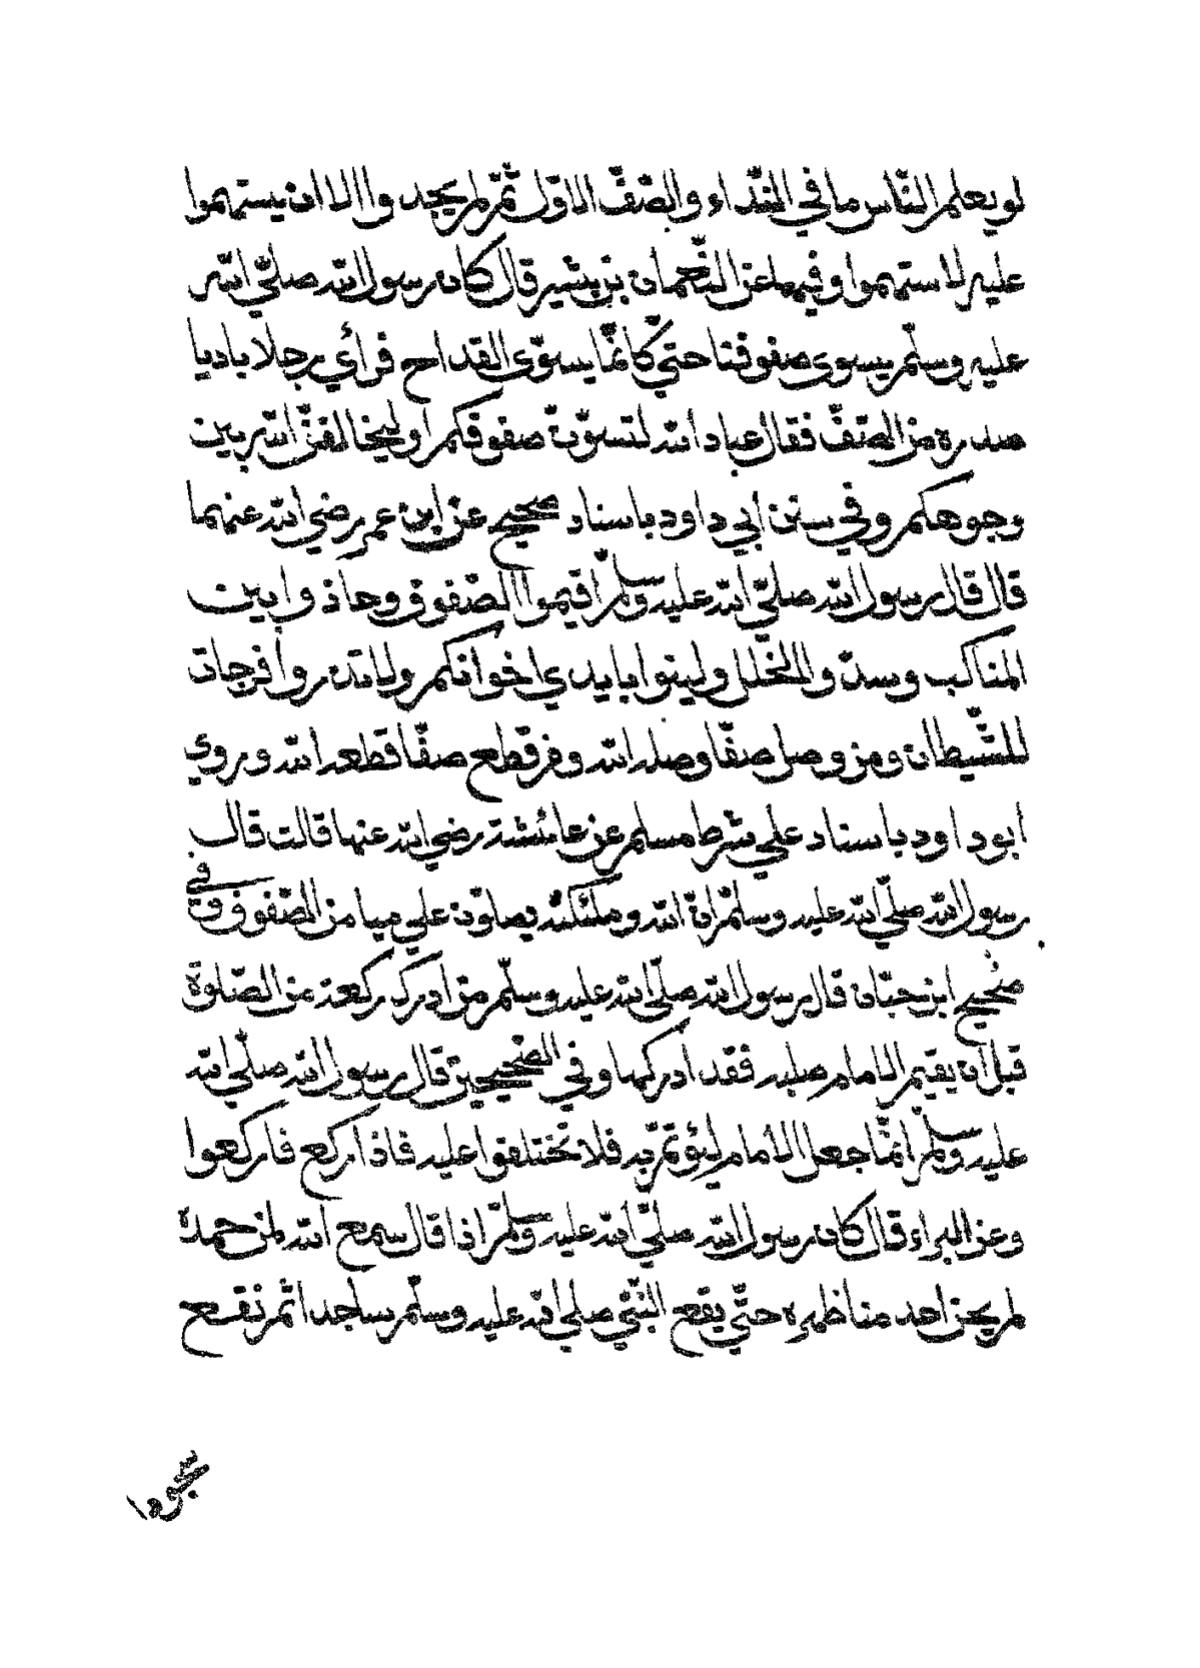 لو يعلم النّاس ما في النّداء والصّفّ الاوّل ثمّ لم يجد والا ان يستهموا
عليه لاستهموا وفيهما عن النّعمان بن بشير قال كان رسول الله صلّي الله
عليه وسلّم يسوى صفوفنا حتي كانّما يسوّى القداح فرأي رجلا باديا
صدره من الصّفّ فقال عباد الله لتسوّن صفوفكم او ليخالفنّ الله بين
وجوهكم وفي سنن ابي داود باسناد صحيح عن ابن عمر رضي الله عنهما
قال قال رسول الله صلّي الله عليه وسلّم اقيموا الصّفوف وحاذوا بين
المناكب وسدّوا الخلل ولينوا بايدي اخوانكم ولا تذروا فرجات
للشّيطان ومن وصل صفّا وصله الله ومن قطع صفّا قطعه الله وروي
ابو داود باسناد علي شرط مسلم عن عائشة رضي الله عنها قالت قال
رسول الله صلّي الله عليه وسلّم انّ الله وملئكته يصلوّن علي ميامن الصّفوف وفي
صحيح ابن حبّان قال رسول الله صلّي الله عليه وسلّم من ادرك ركعة من الصّلوة
قبل ان يقيم الامام صلبه فقد ادركها وفي الصّحيحين قال رسول الله صلّي الله
عليه وسلّم انّما جعل الامام ليؤتمّ به فلا تختلفوا عليه فاذا ركع فاركعوا
وعن البراء قال كان رسول الله صلّي الله عليه وسلّم اذا قال سمع الله لمن حمده
لم يحن احد منا ظهره حتّي يقع النّبيّ صلي الله عليه وسلّم ساجدا ثمّ نقع
سجودا